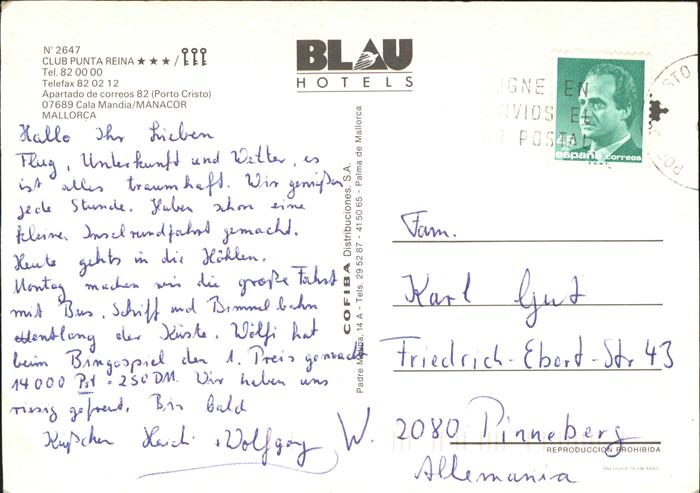 N° 2647
CLUB PUNTA REINA ★★★ /
Tel. 82 00 00
Telefax 82 02 12
Apartado de correos 82 (Porto Cristo)
07689 Cala Mandia/MANACOR
MALLORCA
BLAU
HOTELS
Hallo Ihr Lieben
Flug, Unterkunft und Wetter, es
ist alles traumhaft. Wir genießen
jede Stunde. Haben schon eine
kleine Inselrundfahrt gemacht.
Heute gehts in die Höhlen.
Montag machen wir die große Fahrt
mit Bus, Schiff und Bimmelbahn
entlang der Küste. Wolfi hat
beim Bingospiel den 1. Preis gemacht
14000 Pst = 250 DM. Wir haben uns
riesig gefreut. Bis bald
Küßchen Heidi + Wolfgang W.
COFIBA Distribuciones, S.A.
Padre Molina, 14 A - Tels. 29 52 87 - 41 50 65 - Palma de Mallorca
IGNE EN
NVIOS EL
POSTAL
españa correos
Fam.
Karl Gut
Friedrich-Ebert-Str 43
2080 Pinneberg
REPRODUCCION PROHIBIDA
Allemania